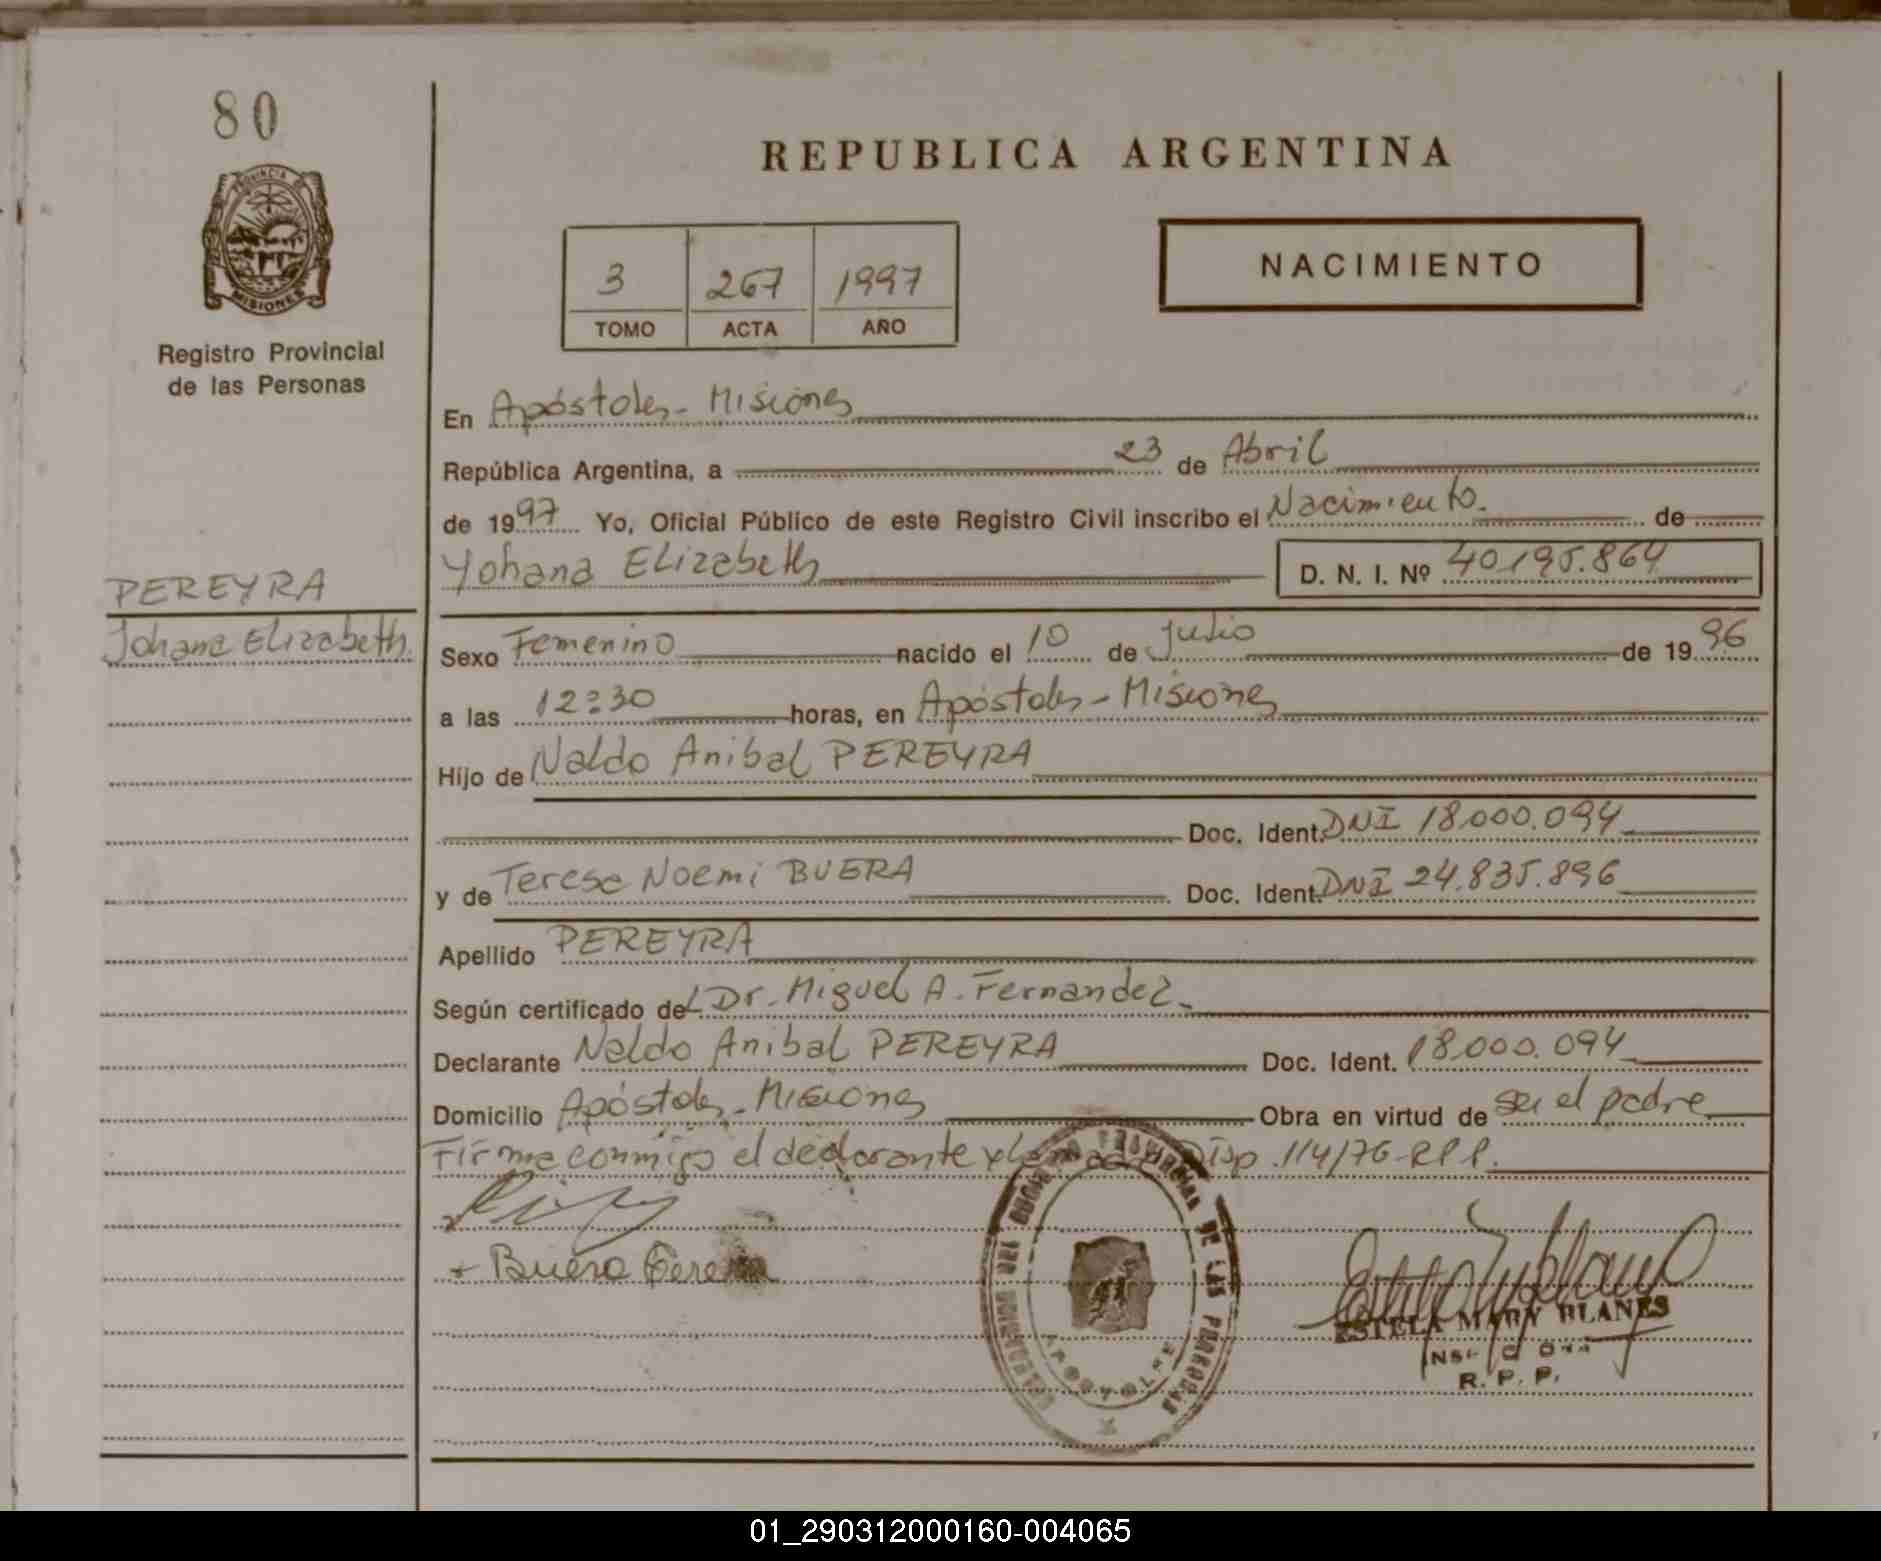 80
PROVINCIA DE
MISIONES
Registro Provincial
de las Personas
PEREYRA
Johana Elizabeth.
REPUBLICA ARGENTINA
3 267 1997
TOMO ACTA AÑO
NACIMIENTO
En Apóstoles - Misiones
República Argentina, a 23 de Abril
de 1997 Yo, Oficial Público de este Registro Civil inscribo el Nacimiento. de
Yohana Elizabeth D. N. I. Nº 40.195.864
Sexo Femenino nacido el 10 de Julio de 1996
a las 12:30 horas, en Apóstoles - Misiones
Hijo de Naldo Anibal PEREYRA
Doc. Ident. DNI 18.000.094
y de Teresa Noemi BUERA Doc. Ident. DNI 24.835.896
Apellido PEREYRA
Según certificado del Dr. Miguel A. Fernandez.
Declarante Naldo Anibal PEREYRA Doc. Ident. 18.000.094
Domicilio Apóstoles - Misiones Obra en virtud de ser el padre
Firma conmigo el declarante y la madre Disp. 114/76-RPP.
+ Buera Teresa
PROVINCIAL DE LAS PERSONAS
APOSTOLES
ESTELA MARY BLANES
R. P. P.
01_290312000160-004065